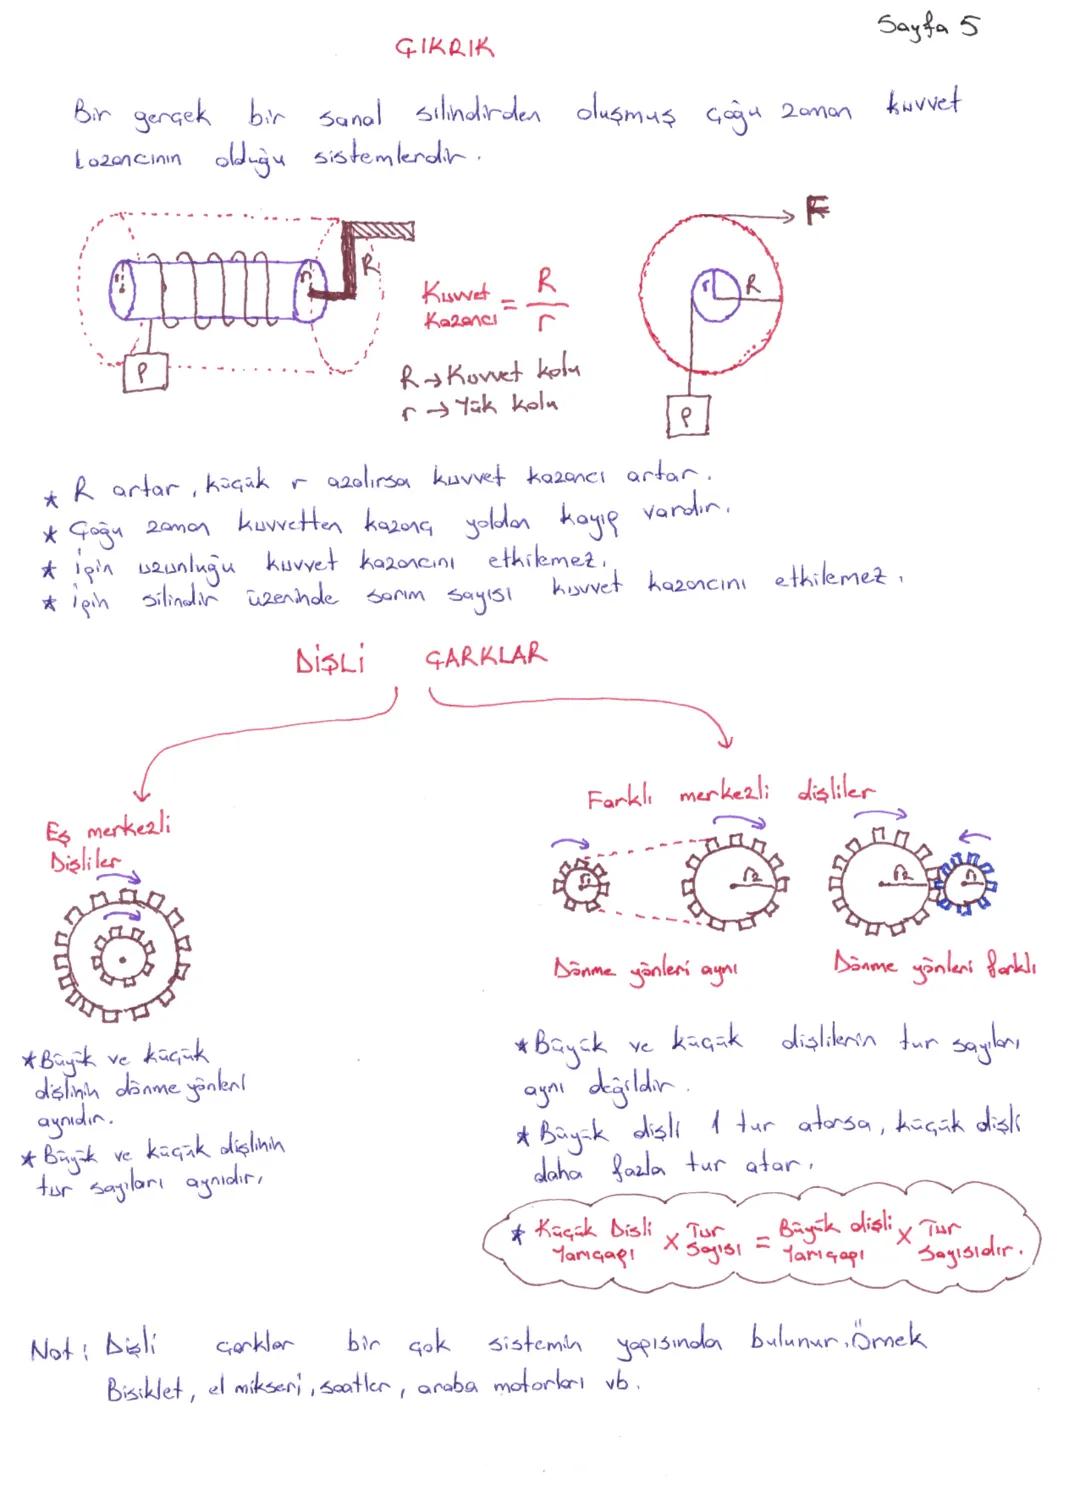 Sayfa 5
ÇIKRIK
Bir gerçek bir sanal silindirden oluşmuş çoğu zaman kuvvet
kazancının olduğu sistemlerdir.
F
R
r
r
Kuvvet Kazancı = R / r
r
R
P
R → Kuvvet kolu
r → Yük kolu
P
* R artar, küçük r azalırsa kuvvet kazancı artar.
* Çoğu zaman kuvvetten kazanç yoldan kayıp vardır.
* İpin uzunluğu kuvvet kazancını etkilemez.
* İpin silindir üzerinde sarım sayısı kuvvet kazancını etkilemez.
DİŞLİ ÇARKLAR
Eş merkezli
Dişliler
Farklı merkezli dişliler
r1
r2
r2
r1
Dönme yönleri aynı
Dönme yönleri farklı
* Büyük ve küçük
dişlinin dönme yönleri
aynıdır.
* Büyük ve küçük dişlinin
tur sayıları aynıdır.
* Büyük ve küçük dişlilerin tur sayıları
aynı değildir.
* Büyük dişli 1 tur atarsa, küçük dişli
daha fazla tur atar.
* Küçük Dişli Yarıçapı x Tur Sayısı = Büyük dişli Yarıçapı x Tur Sayısıdır.
Not: Dişli çarklar bir çok sistemin yapısında bulunur. Örnek
Bisiklet, el mikseri, saatler, araba motorları vb.